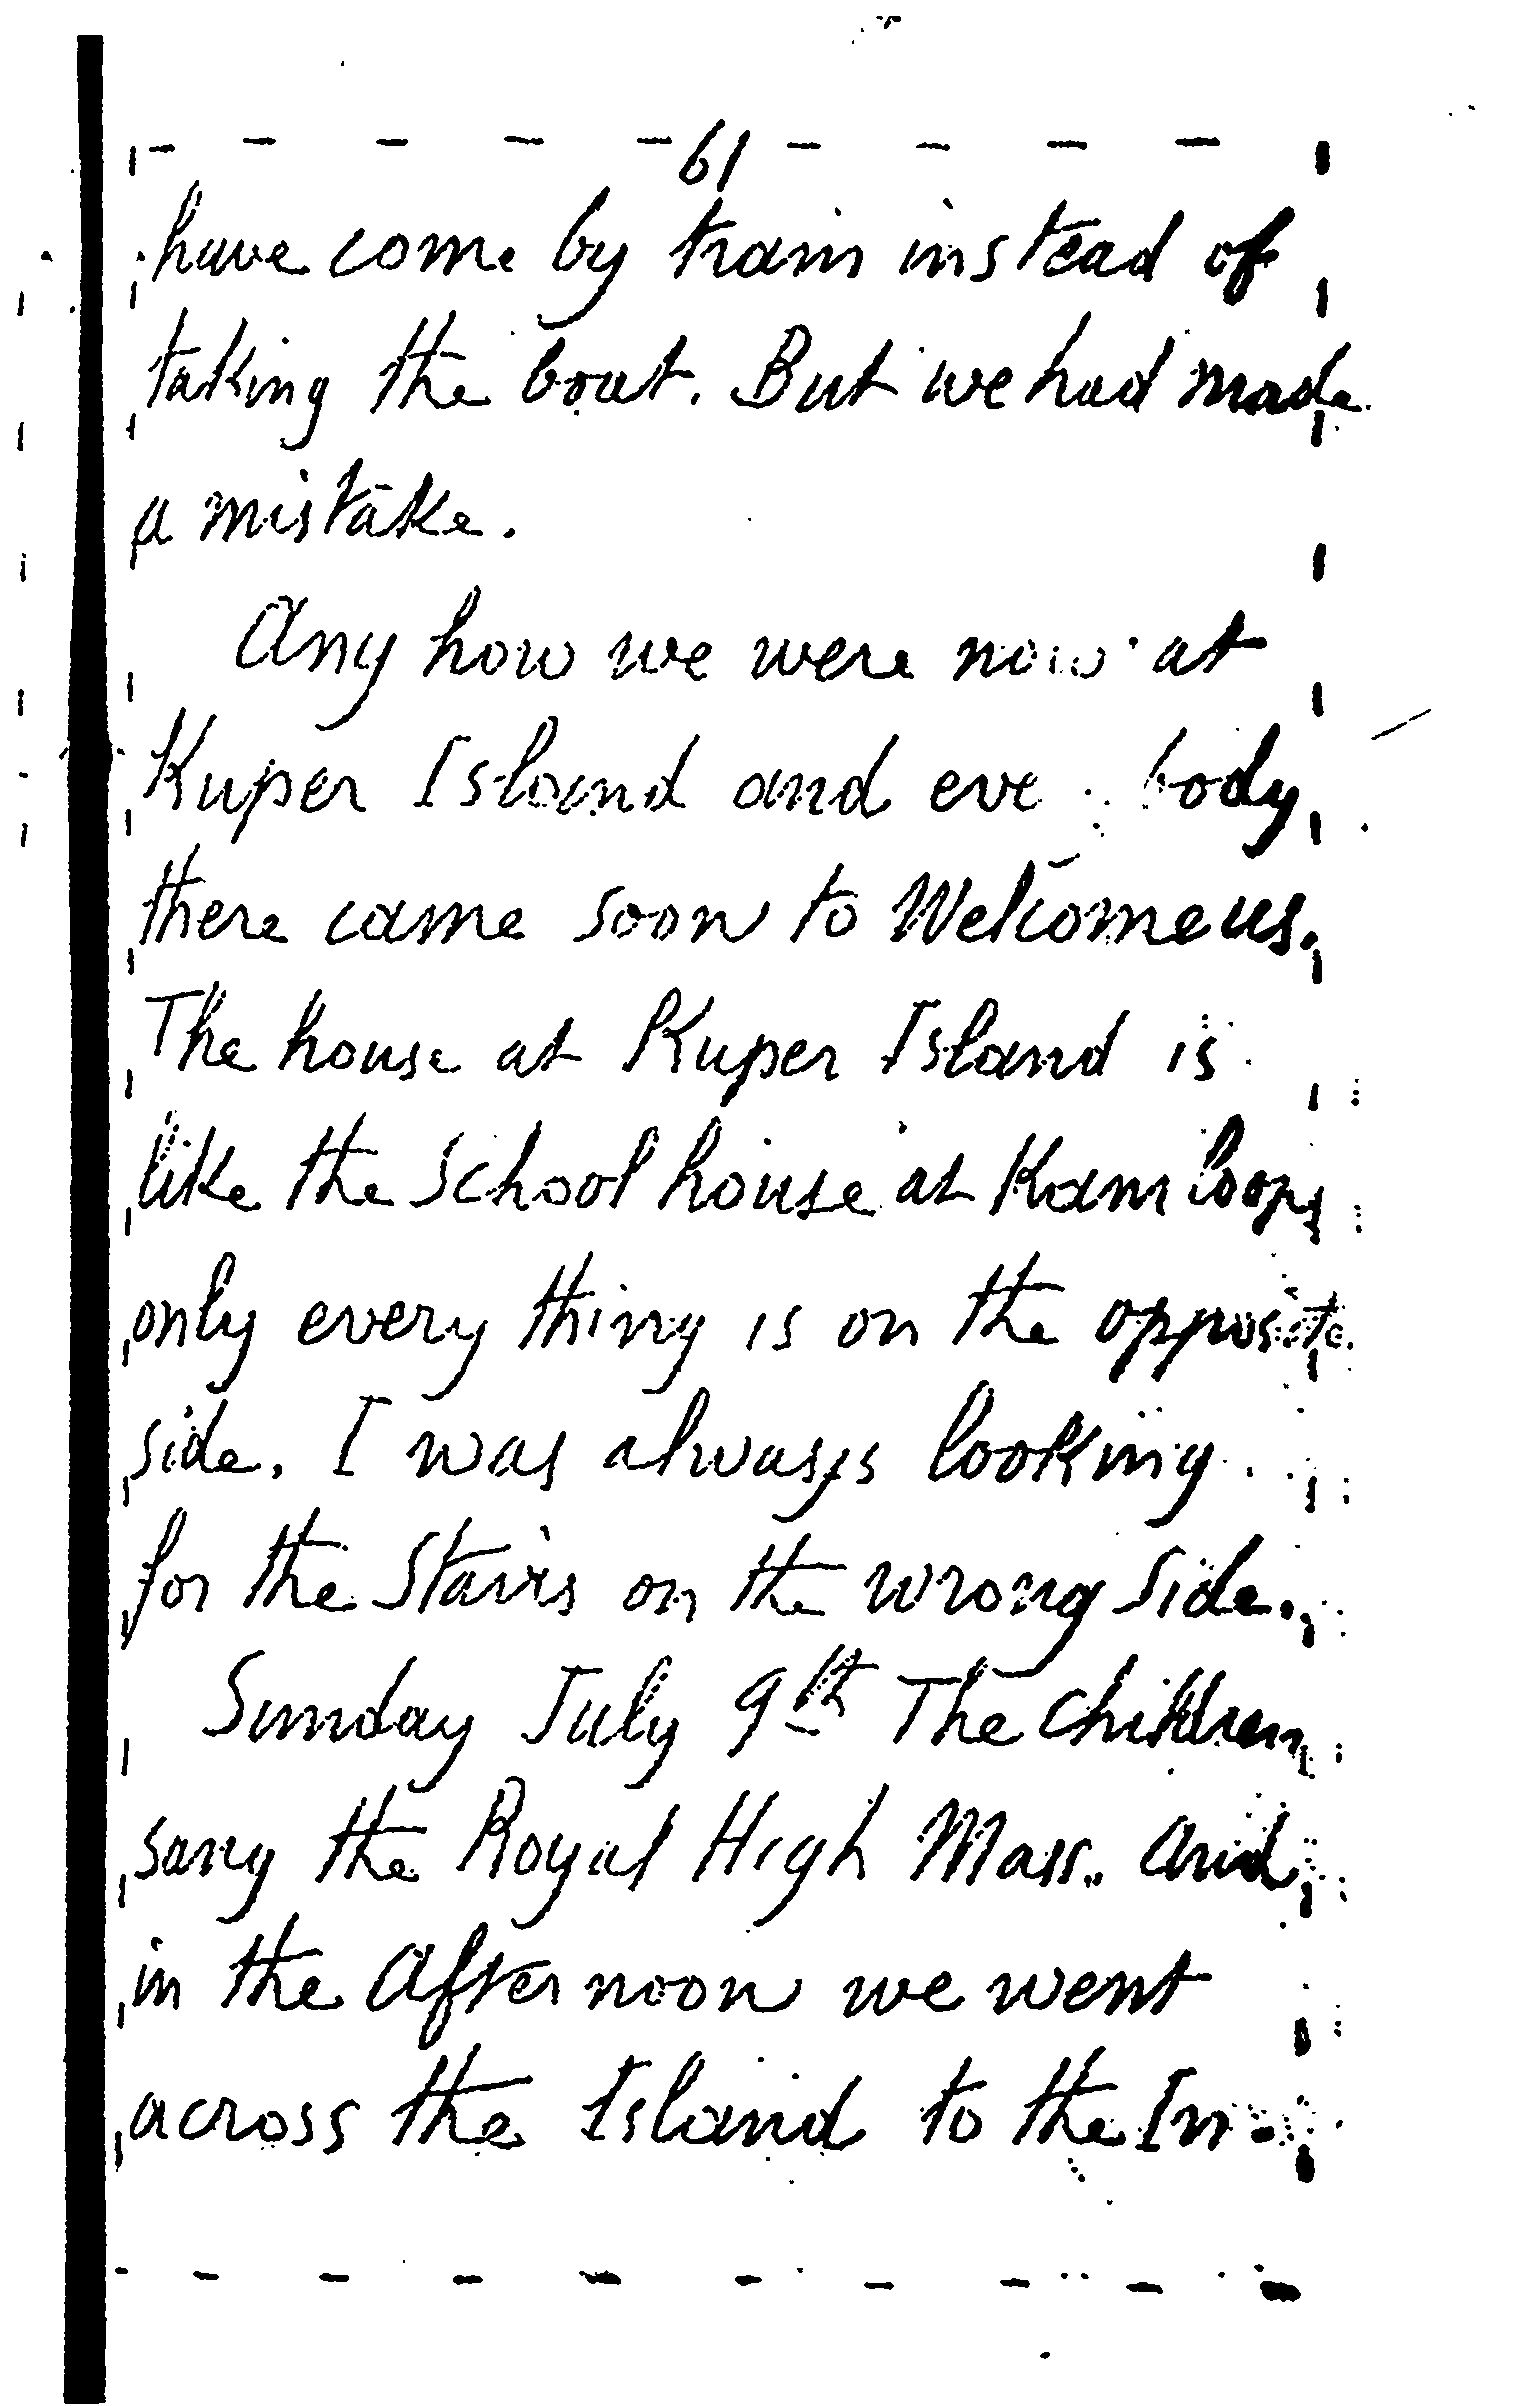 61
have come by train instead of
taking the boat. But we had made
a mistake.
Any how we were now at
Kuper Island and eve body
there came soon to Welcome us.
The house at Kuper Island is
like the School house at Kamloops
only every thing is on the opposite
side. I was always looking
for the Stairs on the wrong side.
Sunday July 9th The children
sang the Royal High Mass. And
in the Afternoon we went
across the Island to the In-